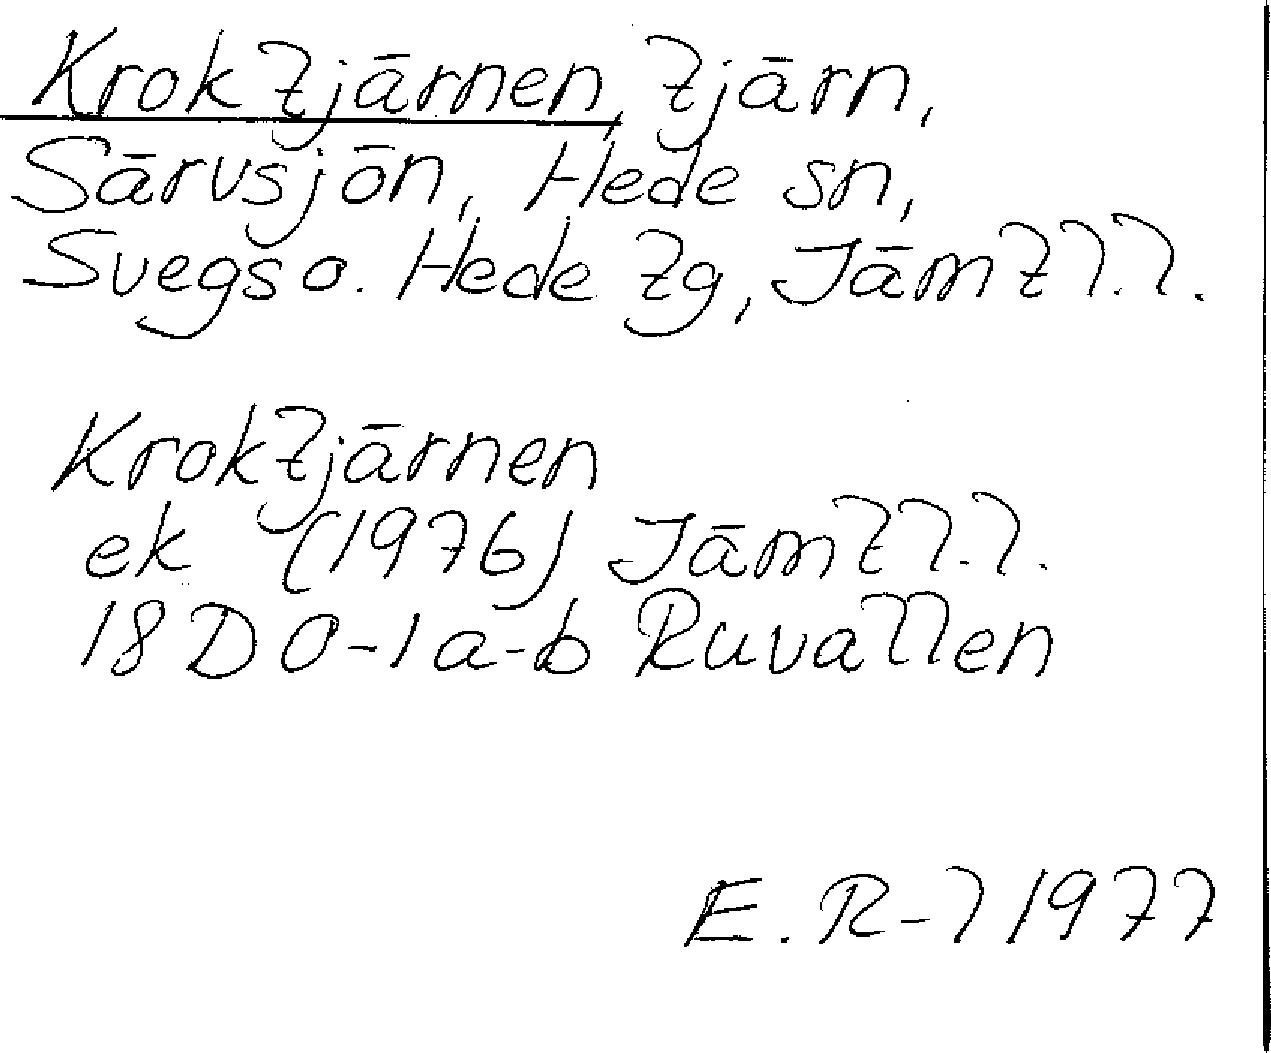 Kroktjärnen, tjärn,
Särvsjön, Hede sn,
Svegs o. Hede tg, Jämtl.l.
Kroktjärnen
ek (1976) Jämtl.l.
18D 0-1a-b Ruvallen
E. R-l 1977